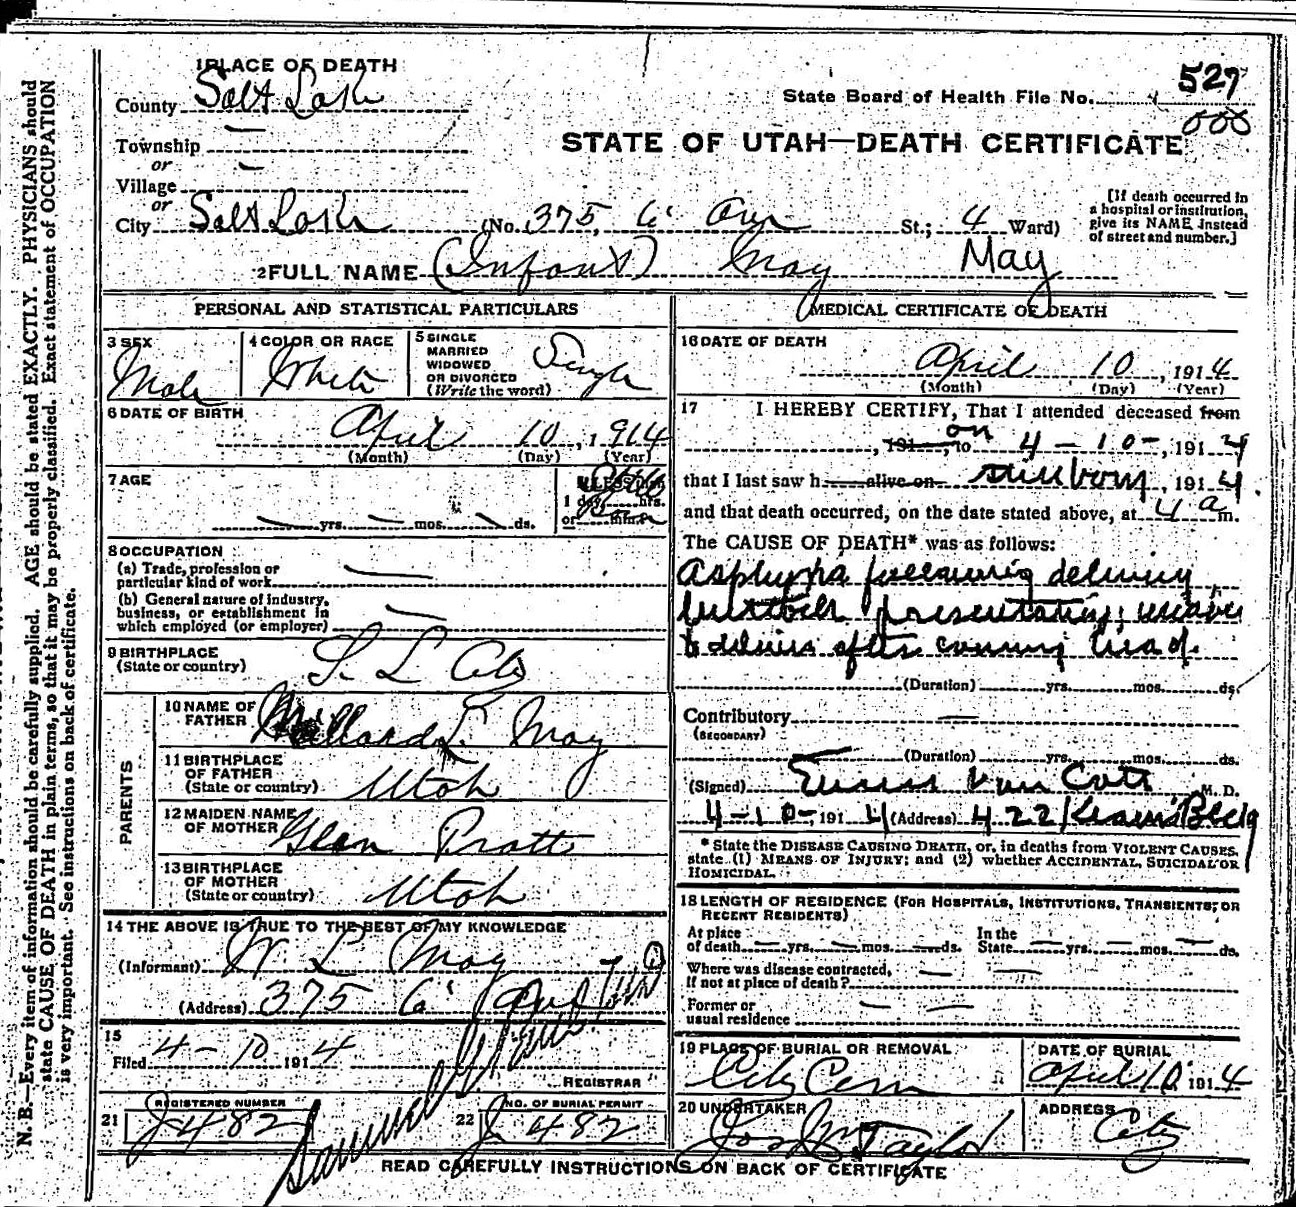 1 PLACE OF DEATH
County Salt Lake
State Board of Health File No. 527
000
Township —
or
Village —
or
City Salt Lake (No. 375, 6' Ave St.; 4 Ward)
STATE OF UTAH—DEATH CERTIFICATE
[If death occurred in
a hospital or institution,
give its NAME instead
of street and number.]
2 FULL NAME (Infant) May May
PERSONAL AND STATISTICAL PARTICULARS
3 SEX
Male
4 COLOR OR RACE
White
5 SINGLE
MARRIED
WIDOWED
OR DIVORCED
(Write the word)
Single
6 DATE OF BIRTH
April 10, 1914
(Month) (Day) (Year)
7 AGE
— yrs. — mos. — ds.
If LESS than
1 day, hrs.
or min.?
Still
Born
8 OCCUPATION
(a) Trade, profession or
particular kind of work —
(b) General nature of industry,
business, or establishment in
which employed (or employer) —
9 BIRTHPLACE
(State or country) S. L. City
PARENTS
10 NAME OF
FATHER Millard L. May
11 BIRTHPLACE
OF FATHER
(State or country) Utah
12 MAIDEN NAME
OF MOTHER Glen Pratt
13 BIRTHPLACE
OF MOTHER
(State or country) Utah
14 THE ABOVE IS TRUE TO THE BEST OF MY KNOWLEDGE
(Informant) L May
(Address) 375 6'
15
Filed 4-10 1914
REGISTRAR
REGISTERED NUMBER
21 J 482
NO. OF BURIAL PERMIT
22 J 482
MEDICAL CERTIFICATE OF DEATH
16 DATE OF DEATH
April 10, 1914
(Month) (Day) (Year)
17 I HEREBY CERTIFY, That I attended deceased from
191 , to on 4-10-, 1914
that I last saw h alive on stillborn, 1914.
and that death occurred, on the date stated above, at 4 a m.
The CAUSE OF DEATH* was as follows:
Asphyxia following delivery
buttock presentation; unable
to deliver after coming head.
(Duration) yrs. mos. ds.
Contributory —
(SECONDARY)
(Duration) yrs. mos. ds.
(Signed) Van Cott M. D.
4-10-, 1914 (Address) 422 Kearns Bldg
* State the DISEASE CAUSING DEATH, or, in deaths from VIOLENT CAUSES,
state (1) MEANS OF INJURY; and (2) whether ACCIDENTAL, SUICIDAL OR
HOMICIDAL.
18 LENGTH OF RESIDENCE (FOR HOSPITALS, INSTITUTIONS, TRANSIENTS, OR
RECENT RESIDENTS)
At place
of death — yrs. — mos. — ds.
In the
State — yrs. — mos. — ds.
Where was disease contracted,
If not at place of death? —
Former or
usual residence —
19 PLACE OF BURIAL OR REMOVAL
City Cem
DATE OF BURIAL
April 10 1914
20 UNDERTAKER
Jos Wm Taylor
ADDRESS
City
READ CAREFULLY INSTRUCTIONS ON BACK OF CERTIFICATE
N. B.—Every item of information should be carefully supplied. AGE should be stated EXACTLY. PHYSICIANS should
state CAUSE OF DEATH in plain terms, so that it may be properly classified. Exact statement of OCCUPATION
is very important. See instructions on back of certificate.